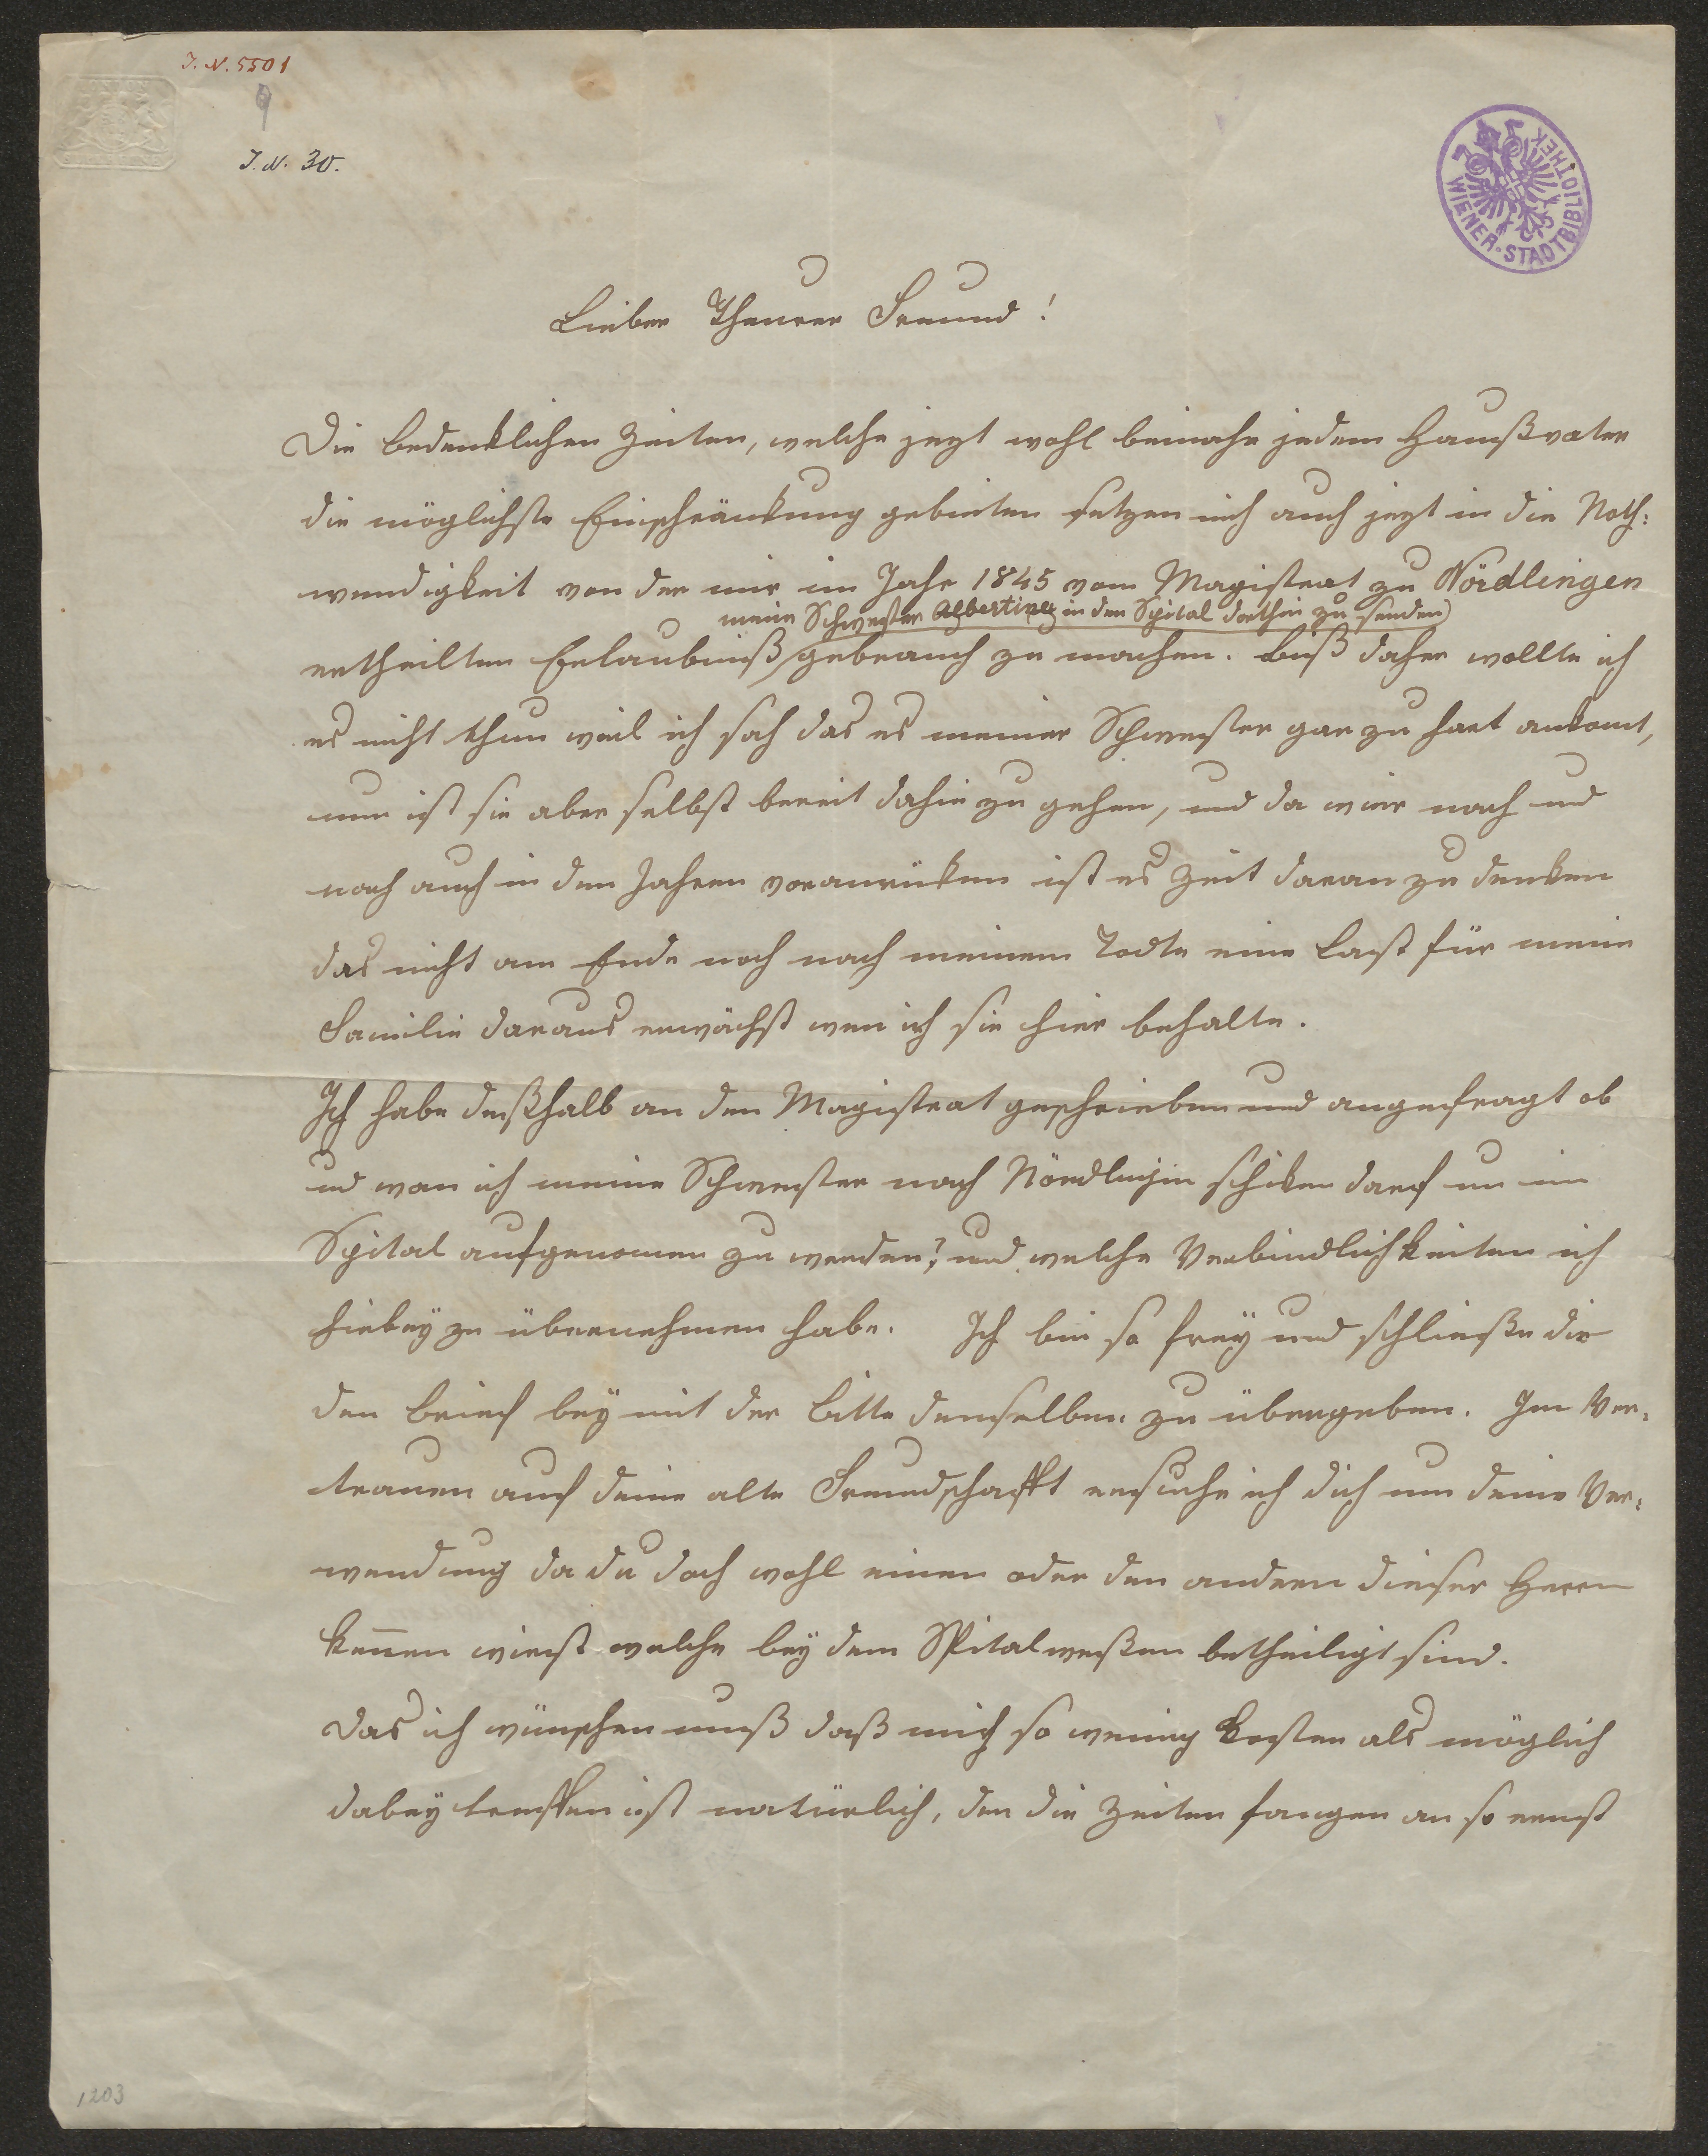 I. N. 5501
9
I. N. 30.
WIENER-STADTBIBLIOTHEK
Lieber Theurer Freund!
Die bedenklichen Zeiten, welche jezt wohl beinahe jedem Haußvater
die möglichste Einschränkung gebieten setzen mich auch jezt in die Noth:
wendigkeit von der mir im Jahr 1845 vom Magistrat zu Nördlingen
meine Schwester Albertine in den Spital dorthin zu senden
ertheilten Erlaubniß gebrauch zu machen. Biß daher wollte ich
es nicht thun weil ich sah das es meiner Schwester gar zu hart ankomt,
nun ist sie aber selbst bereit dahin zu gehen, und da wir nach und
nach auch in den Jahren voranrüken ist es Zeit daran zu denken
das nicht am Ende noch nach meinem Todte eine Last für meine
Familie daraus erwächst wen ich sie hier behalte.
Ich habe deßhalb an den Magistrat geschrieben und angefragt ob
und wan ich meine Schwester nach Nördlingen schiken darf um im
Spital aufgenomen zu werden? und welche Verbindlichkeiten ich
hiebey zu übernehmen habe. Ich bin so frey und schließe dir
den Brief bey mit der Bitte denselben zu übergeben. Im Ver:
trauen auf deine alte Freundschafft ersuche ich dich um deine Ver:
wendung da du doch wohl einen oder den andern dieser Herrn
kennen wirst welche bey dem Spitalweßen betheiligt sind.
Das ich wünschen muß daß mich so wenig Kosten als möglich
dabey treffen ist natürlich, den die Zeiten fangen an so ernst
1203